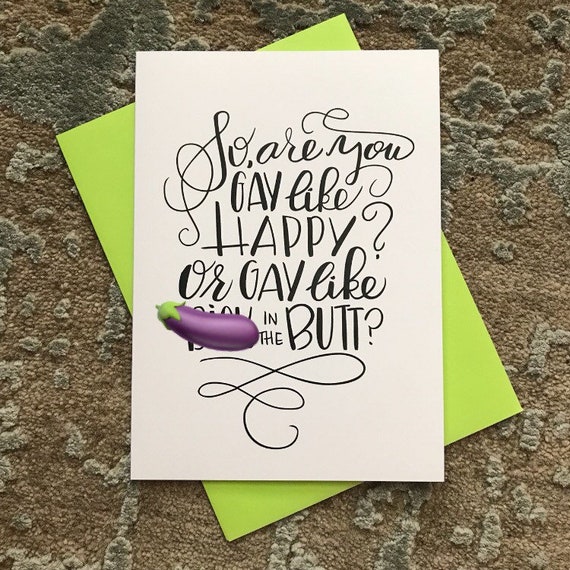 So, are you
GAY like
HAPPY?
Or GAY like
IN THE BUTT?